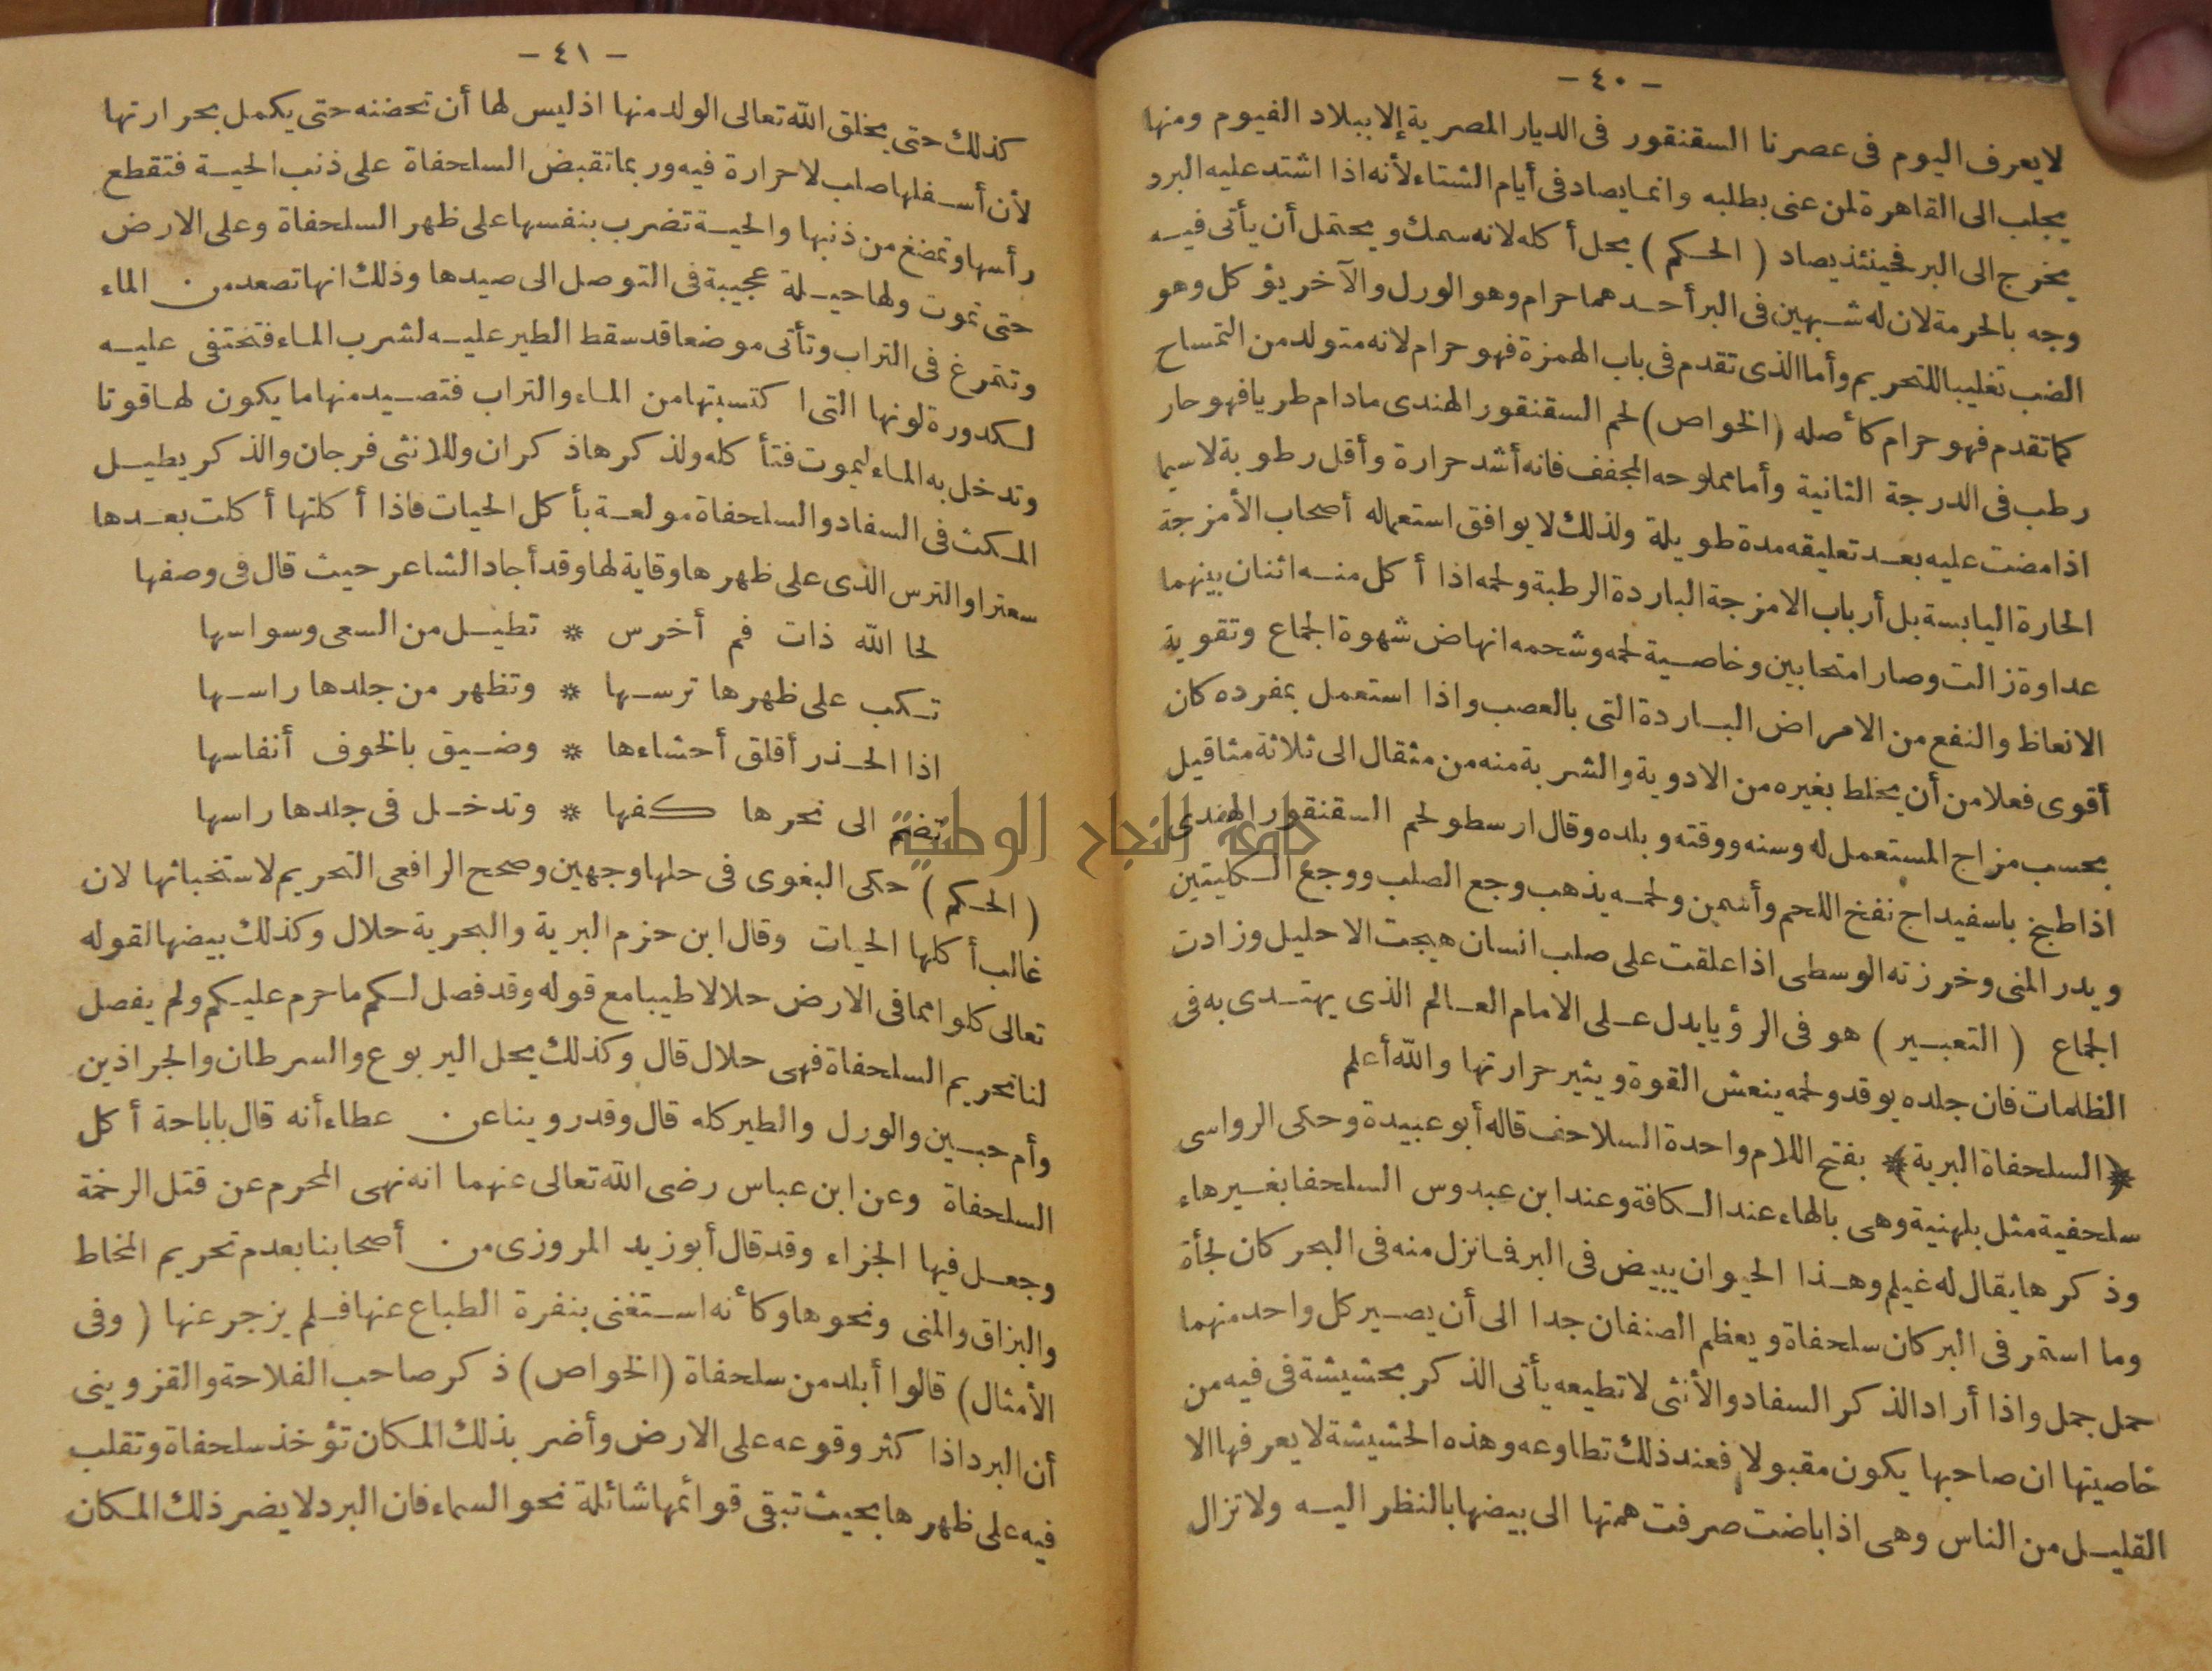 — ٤٠ —
لا يعرف اليوم فى عصرنا السقنقور فى الديار المصرية إلا ببلاد الفيوم ومنها
يجلب الى القاهرة لمن عنى بطلبه وانما يصاد فى أيام الشتاء لأنه اذا اشتد عليه البرد
يخرج الى البر فحينئذ يصاد ( الحكم ) يحل أكله لانه سمك ويحتمل أن يأتى فيه
وجه بالحرمة لان له شبهين فى البر أحدهما حرام وهو الورل والآخر يؤكل وهو
الضب تغليبا للتحريم وأما الذى تقدم فى باب الهمزة فهو حرام لانه متولد من التمساح
كما تقدم فهو حرام كأصله ( الخواص ) لحم السقنقور الهندى ما دام طريا فهو حار
رطب فى الدرجة الثانية وأما مملوحه المجفف فانه أشد حرارة وأقل رطوبة لا سيما
اذا مضت عليه بعد تعليقه مدة طويلة ولذلك لا يوافق استعماله أصحاب الأمزجة
الحارة اليابسة بل أرباب الامزجة الباردة الرطبة ولحمه اذا أكل منه اثنان بينهما
عداوة زالت وصارا متحابين وخاصية لحمه وشحمه انهاض شهوة الجماع وتقوية
الانعاظ والنفع من الامراض الباردة التى بالعصب واذا استعمل بمفرده كان
أقوى فعلا من أن يخلط بغيره من الادوية والشربة منه من مثقال الى ثلاثة مثاقيل
بحسب مزاج المستعمل له وسنه ووقته وبلده وقال ارسطو لحم السقنقور الهندى
اذا طبخ باسفيداج نفخ اللحم وأسمن ولحمه يذهب وجع الصلب ووجع الكليتين
ويدر المنى وخرزته الوسطى اذا علقت على صلب انسان هيجت الاحليل وزادت
الجماع ( التعبير ) هو فى الرؤيا يدل على الامام العالم الذى يهتدى به فى
الظلمات فان جلده يوقد ولحمه ينعش القوة ويثير حرارتها والله أعلم
﴿ السلحفاة البرية ﴾ بفتح اللام واحدة السلاحف قاله أبو عبيدة وحكى الرواسى
سلحفية مثل بلهنية وهى بالهاء عند الكافة وعند ابن عبدوس السلحفا بغير هاء
وذكرها يقال له غيلم وهذا الحيوان يبيض فى البر فما نزل منه فى البحر كان لجأة
وما استمر فى البر كان سلحفاة ويعظم الصنفان جدا الى أن يصير كل واحد منهما
حمل جمل واذا أراد الذكر السفاد والأنثى لا تطيعه يأتى الذكر بحشيشة فى فيه من
خاصيتها ان صاحبها يكون مقبولا فعند ذلك تطاوعه وهذه الحشيشة لا يعرفها الا
القليل من الناس وهى اذا باضت صرفت همتها الى بيضها بالنظر اليه ولا تزال
— ٤١ —
كذلك حتى يخلق الله تعالى الولد منها اذ ليس لها أن تحضنه حتى يكمل بحرارتها
لأن أسفلها صلب لا حرارة فيه وربما تقبض السلحفاة على ذنب الحية فتقطع
رأسها وتمضغ من ذنبها والحية تضرب بنفسها على ظهر السلحفاة وعلى الارض
حتى تموت ولها حيلة عجيبة فى التوصل الى صيدها وذلك انها تصعد من الماء
وتتمرغ فى التراب وتأتى موضعا قد سقط الطير عليه لشرب الماء فتختفى عليه
لكدورة لونها التى اكتسبتها من الماء والتراب فتصيد منها ما يكون لها قوتا
وتدخل به الماء ليموت فتأكله ولذكرها ذكران وللانثى فرجان والذكر يطيل
المكث فى السفاد والسلحفاة مولعة بأكل الحيات فاذا أكلتها أكلت بعدها
سعترا والترس الذى على ظهرها وقاية لها وقد أجاد الشاعر حيث قال فى وصفها
لحا الله ذات فم أخرس * تطيل من السعى وسواسها
تكب على ظهرها ترسها * وتظهر من جلدها راسها
اذا الحذر أقلق أحشاءها * وضيق بالخوف أنفاسها
تضم الى نحرها كفها * وتدخل فى جلدها راسها
( الحكم ) حكى البغوى فى حلها وجهين وصحح الرافعى التحريم لاستخباثها لان
غالب أكلها الحيات وقال ابن حزم البرية والبحرية حلال وكذلك بيضها لقوله
تعالى كلوا مما فى الارض حلالا طيبا مع قوله وقد فصل لكم ما حرم عليكم ولم يفصل
لنا تحريم السلحفاة فهى حلال قال وكذلك يحل اليربوع والسرطان والجراذين
وأم حبين والورل والطير كله قال وقد روينا عن عطاء أنه قال باباحة أكل
السلحفاة وعن ابن عباس رضى الله تعالى عنهما انه نهى المحرم عن قتل الرخمة
وجعل فيها الجزاء وقد قال أبو زيد المروزى من أصحابنا بعدم تحريم المخاط
والبزاق والمنى ونحوها وكأنه استغنى بنفرة الطباع عنها فلم يزجر عنها ( وفى
الأمثال ) قالوا أبلد من سلحفاة ( الخواص ) ذكر صاحب الفلاحة والقزوينى
أن البرد اذا كثر وقوعه على الارض وأضر بذلك المكان تؤخذ سلحفاة وتقلب
فيه على ظهرها بحيث تبقى قوائمها شائلة نحو السماء فان البرد لا يضر ذلك المكان
جامعة النجاح الوطنية